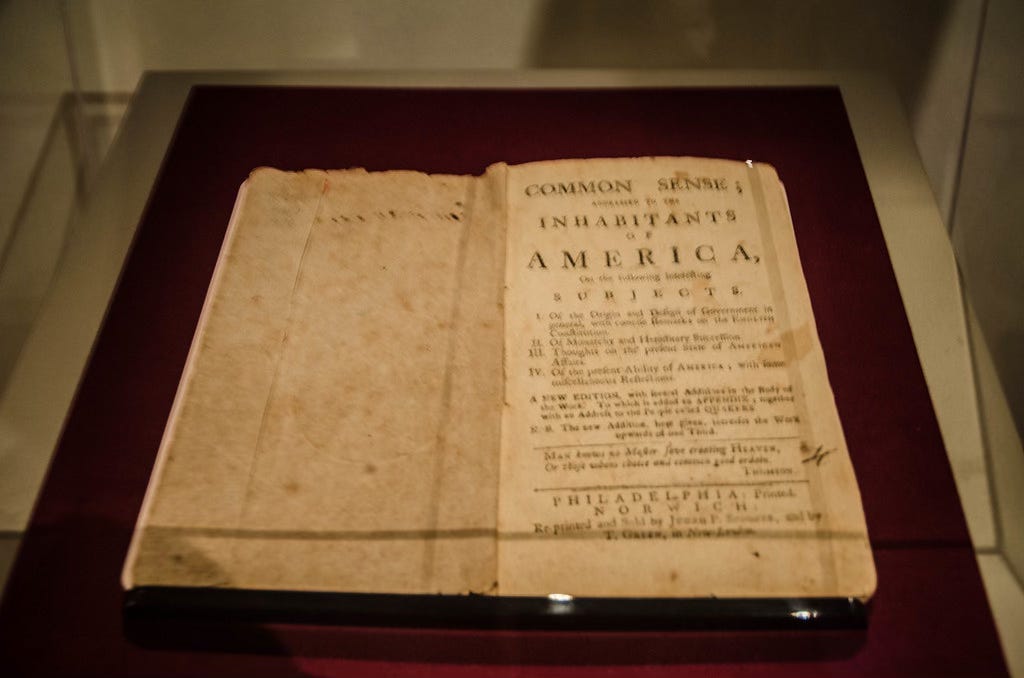 COMMON SENSE;
ADDRESSED TO THE
INHABITANTS
OF
AMERICA,
On the following interesting
SUBJECTS.
I. Of the Origin and Design of Government in
general, with concise Remarks on the ENGLISH
Constitution.
II. Of Monarchy and Hereditary Succession.
III. Thoughts on the present State of AMERICAN
Affairs.
IV. Of the present Ability of AMERICA; with some
miscellaneous Reflections.
A NEW EDITION, with several Additions in the Body of
the Work. To which is added an APPENDIX; together
with an Address to the People called QUAKERS.
N. B. The new Addition, here given, increases the Work
upwards of one Third.
MAN knows no Master save creating HEAVEN,
Or those whom choice and common good ordain.
THOMSON.
PHILADELPHIA; Printed.
NORWICH:
Re-printed and Sold by JUDAH P. SPOONER, and by
T. GREEN, in New-London.